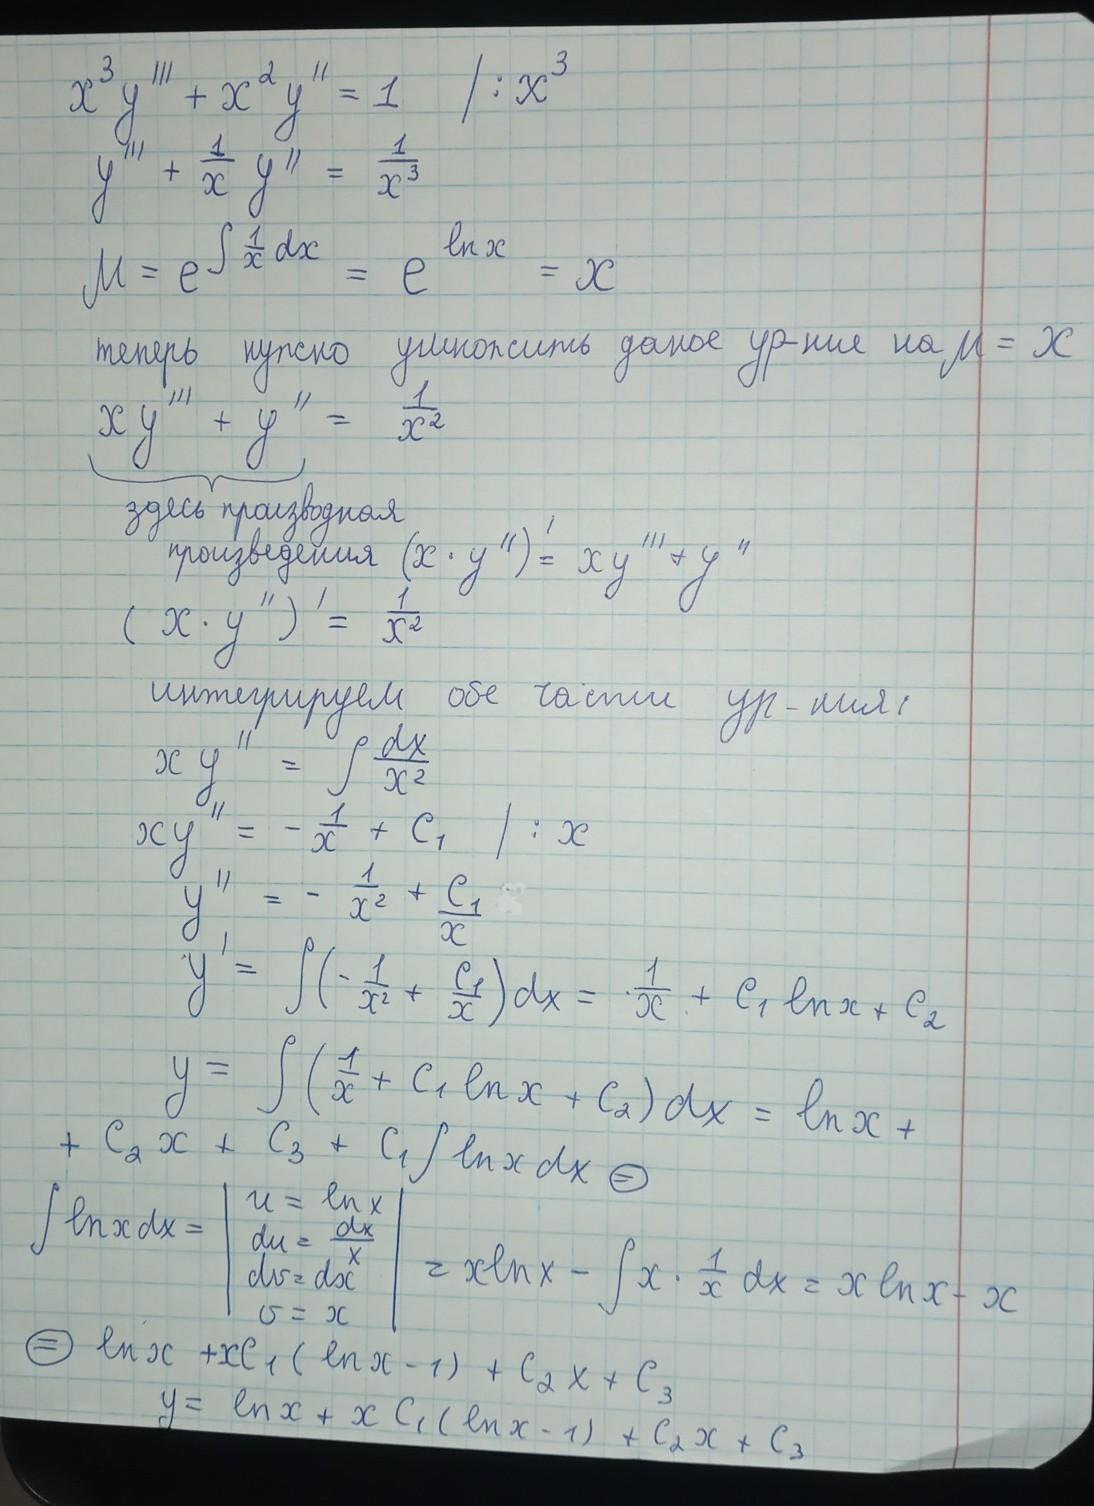 x³y''' + x²y'' = 1 / : x³
y''' + 1/x y'' = 1/x³
M = e^∫ 1/x dx = e^ln x = x
теперь нужно умножить даное ур-ние на M = x
xy''' + y'' = 1/x²
здесь производная
произведения (x · y'')' = xy''' + y''
(x · y'')' = 1/x²
интегрируем обе части ур-ния:
xy'' = ∫ dx/x²
xy'' = - 1/x + C₁ / : x
y'' = - 1/x² + C₁/x
y' = ∫(- 1/x² + C₁/x)dx = 1/x + C₁ ln x + C₂
y = ∫(1/x + C₁ ln x + C₂)dx = ln x +
+ C₂x + C₃ + C₁∫ln x dx ⊜
∫ln x dx = | u = ln x
du = dx/x
dv = dx
v = x | = x ln x - ∫x · 1/x dx = x ln x - x
⊜ ln x + xC₁(ln x - 1) + C₂x + C₃
y = ln x + xC₁(ln x - 1) + C₂x + C₃